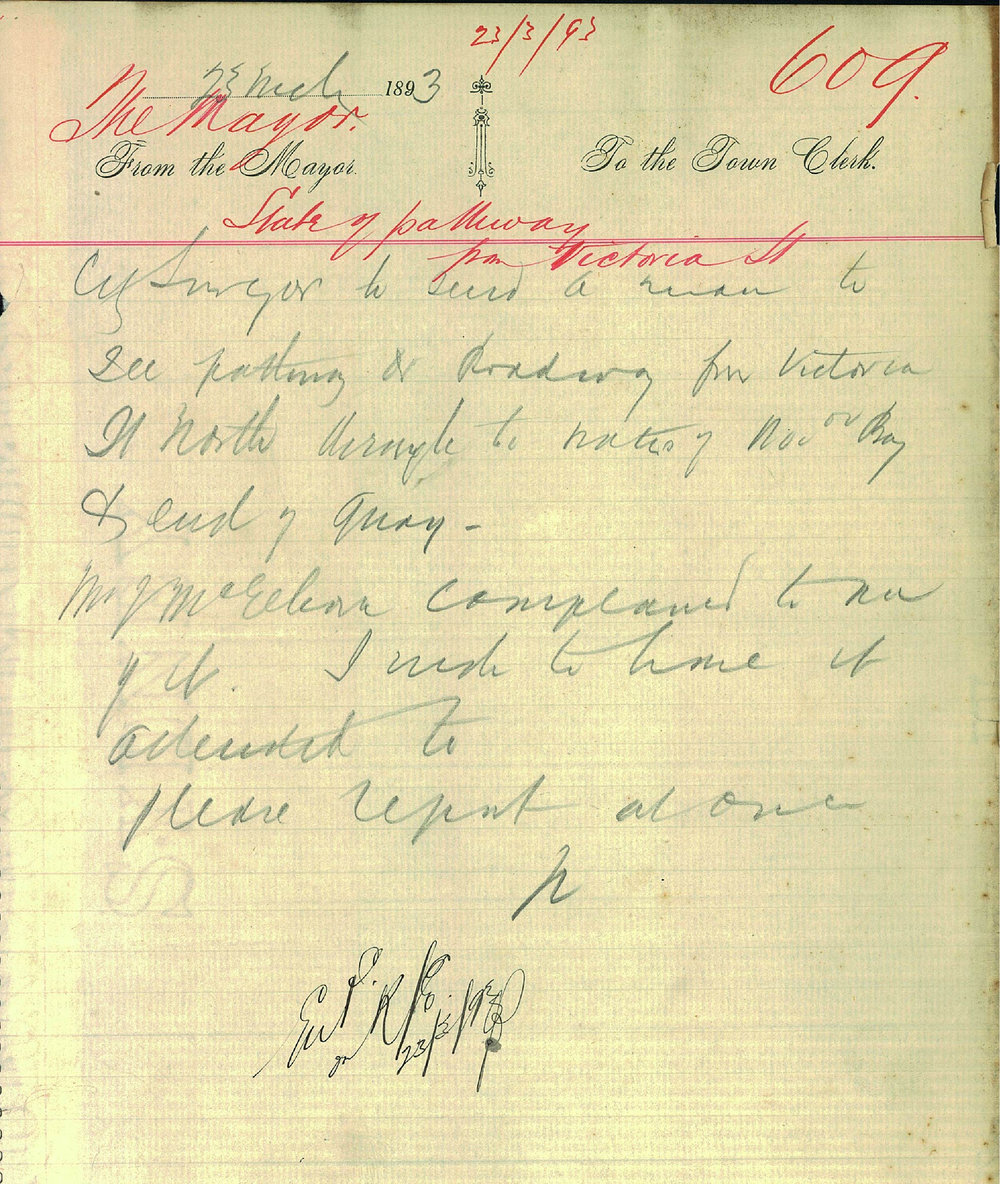 23/3/93
609.
23 Mch 1893
The Mayor.
From the Mayor.
To the Town Clerk.
State of pathway
from Victoria St
City Surveyor to send a man to
see pathway & Roadway from Victoria
St North through to of Bay
& end of Quay -
Mr J complained to me
of it. I wish to have it
attended to
please report at once
23/3/93